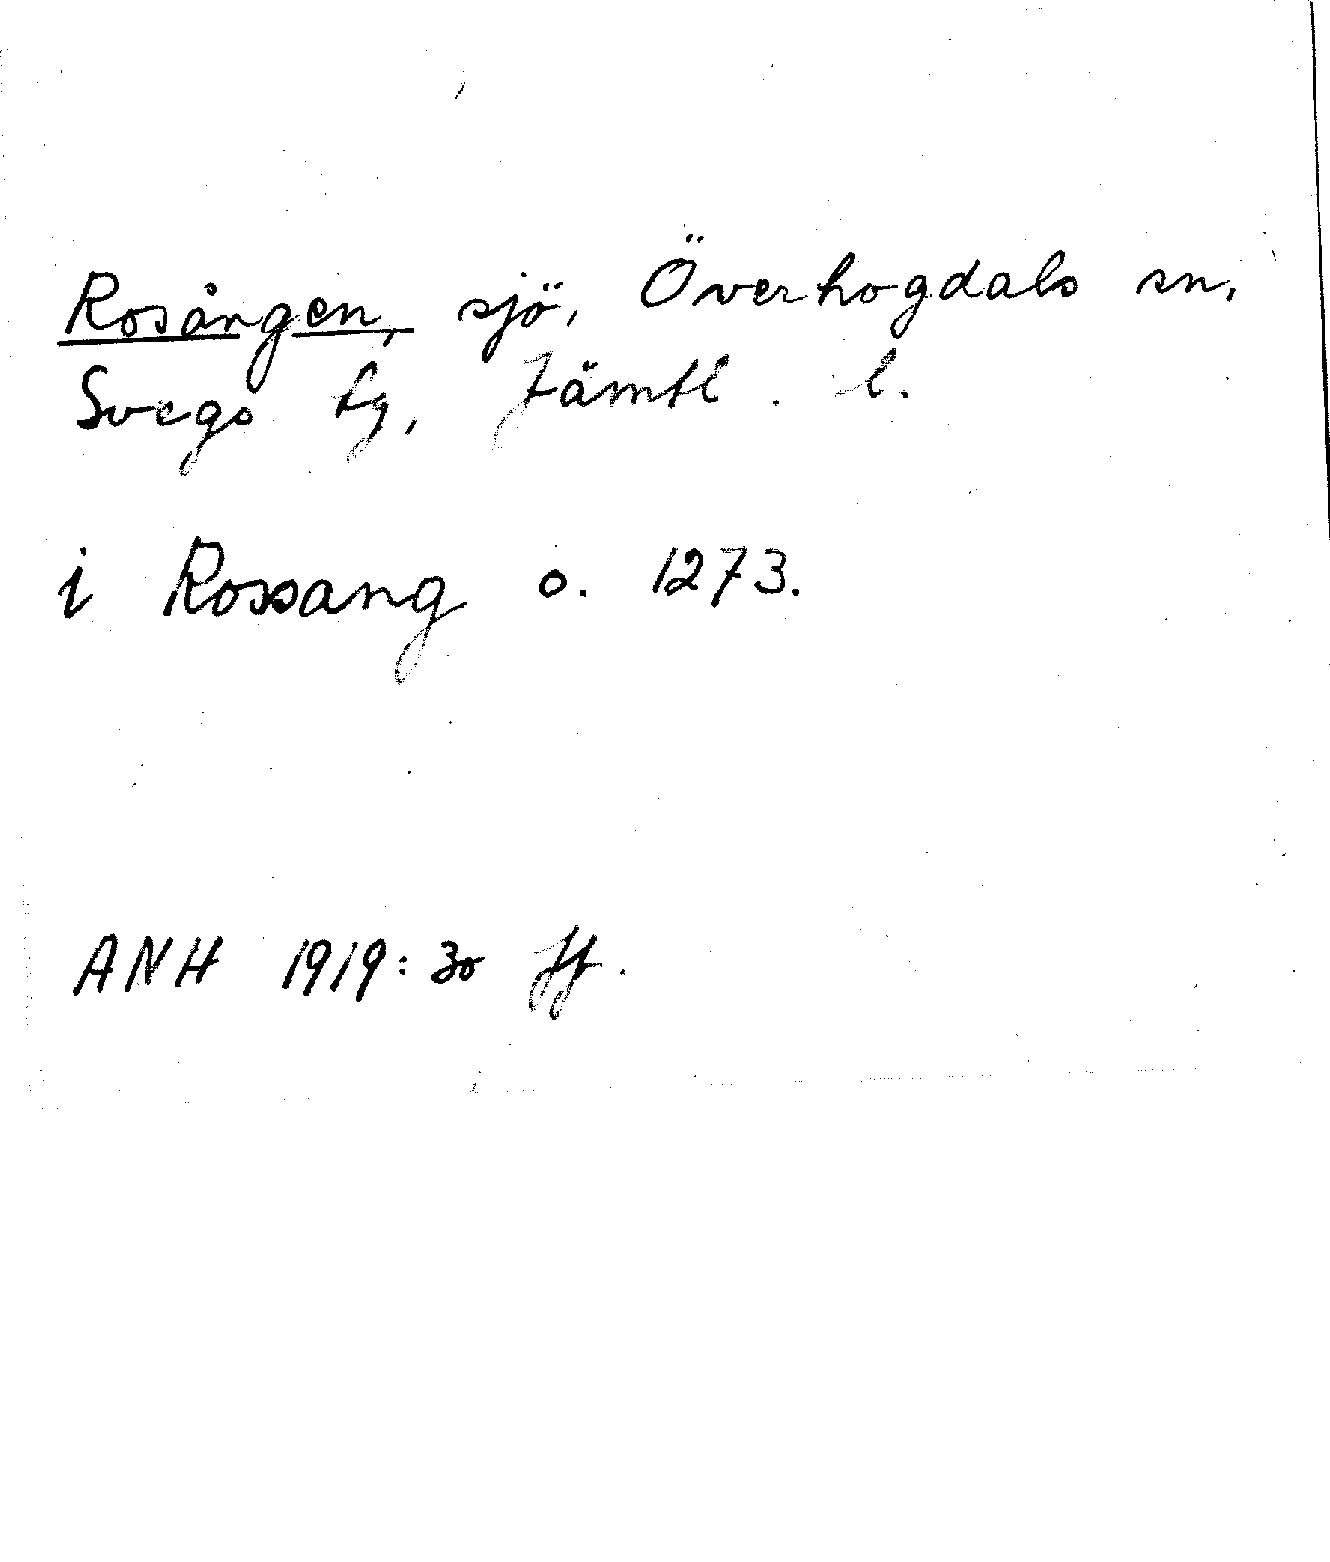 Rosången, sjö, Överhogdals sn,
Svegs tg, Jämtl. l.
i Rossang o. 1273.
ANH 1919:30 ff.